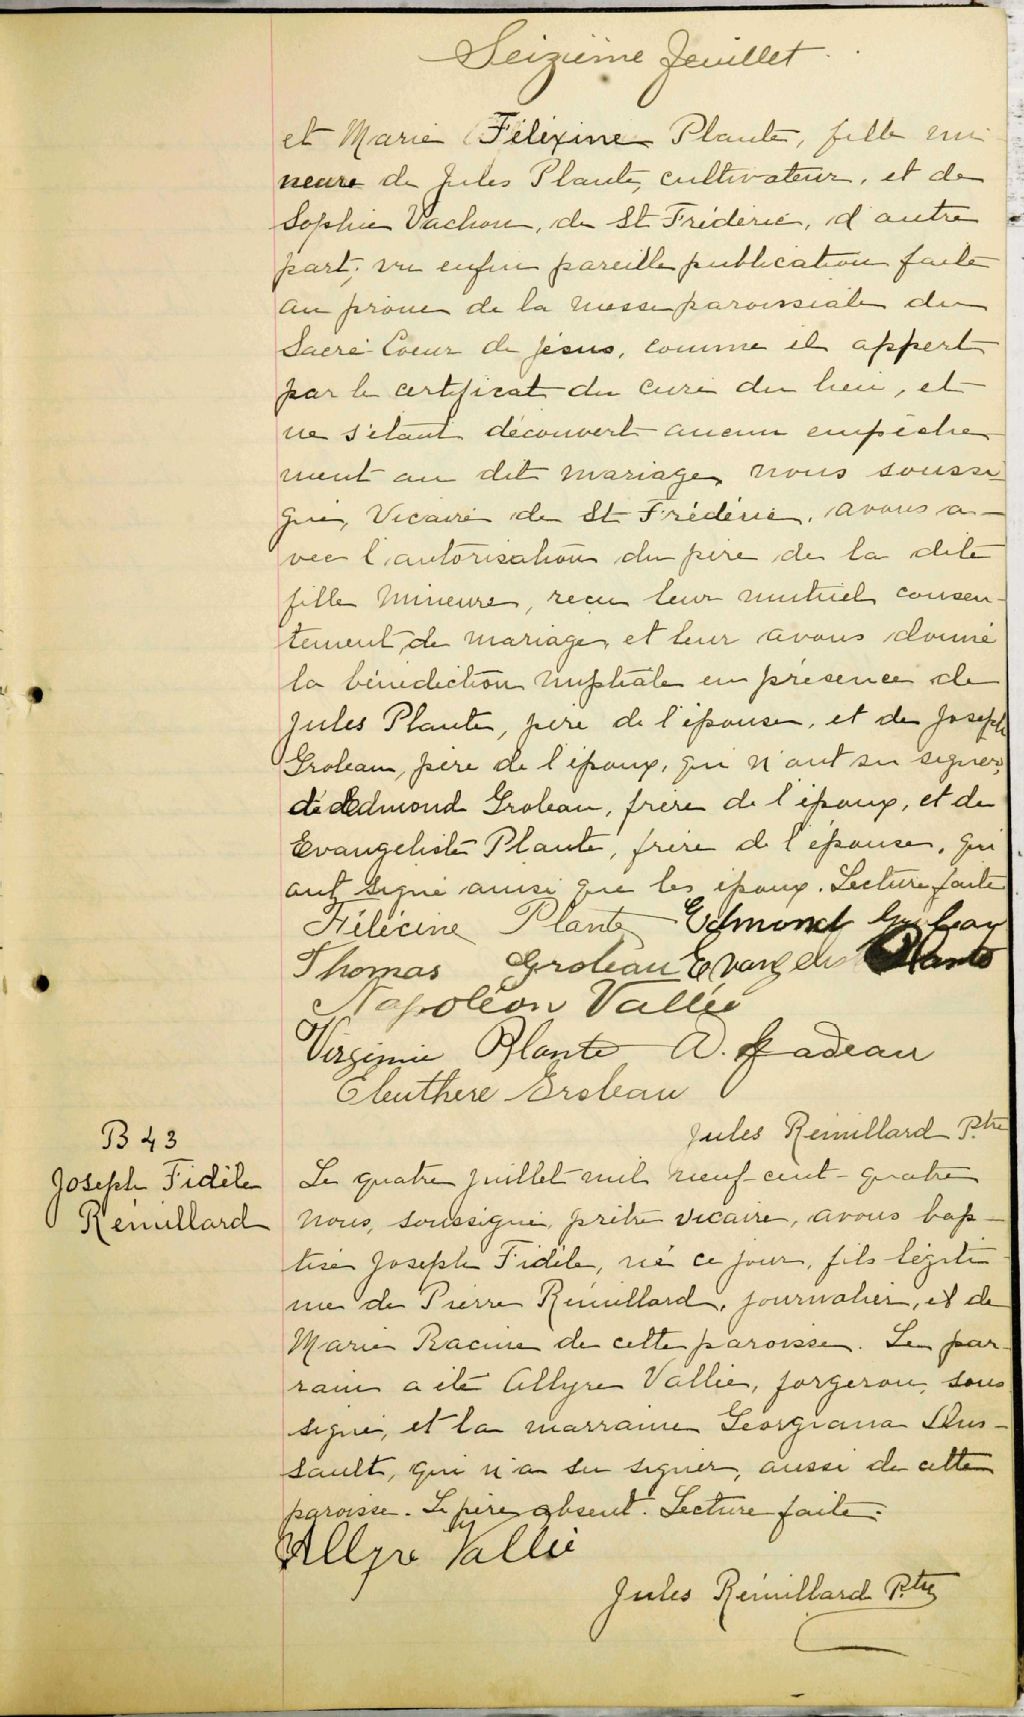 Seizième feuillet
et Marie Félixine Plante, fille mi
neure de Jules Plante, cultivateur, et de
Sophie Vachon, de St Frédéric, d'autre
part; vu enfin pareille publication faite
au prone de la messe paroissiale du
Sacré-Coeur de Jésus, comme il appert
par le certificat du curé du lieu, et
ne s'étant découvert aucun empêche
ment au dit mariage, nous soussi
gné, Vicaire de St Frédéric, avons a-
vec l'autorisation du père de la dite
fille mineure, reçu leur mutuel consen-
tement de mariage, et leur avons donné
la bénédiction nuptiale en présence de
Jules Plante, père de l'épouse, et de Joseph
Groleau, père de l'époux, qui n'ont su signer,
de Edmond Groleau, frère de l'époux, et de
Evangeliste Plante, frère de l'épouse, qui
ont signé ainsi que les époux. Lecture faite
Félécine Plante Edmond Groleau
Thomas Groleau Evangelis Plante
Napoléon Vallée
Virginie Plante A. Nadeau
Eleuthere Groleau
Jules Rémillard Ptre
B 43
Joseph Fidèle
Rémillard
Le quatre juillet mil neuf-cent-quatre
nous, soussigné, prêtre vicaire, avons bap-
tisé Joseph Fidèle, né ce jour, fils légiti-
me de Pierre Rémillard, journalier, et de
Marie Racine de cette paroisse. Le par-
rain a été Allyre Vallée, forgeron, sous
signé, et la marraine Georgiana Dus-
sault, qui n'a su signer, aussi de cette
paroisse. Le père absent. Lecture faite.
Allyre Vallée
Jules Rémillard Ptre